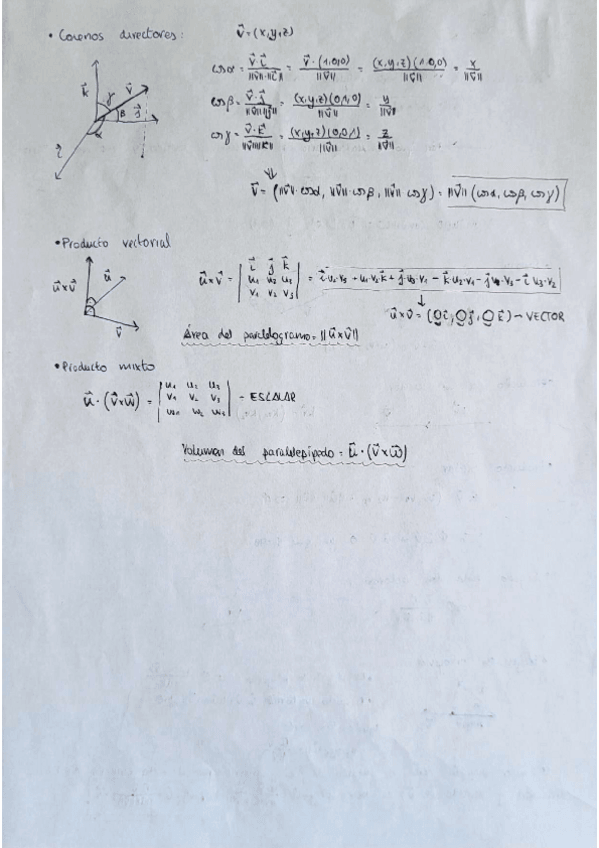 • Cosenos directores: v⃗=(x,y,z)
cosα = v⃗·i⃗ / ‖v⃗‖·‖i⃗‖ = v⃗·(1,0,0) / ‖v⃗‖ = (x,y,z)(1,0,0) / ‖v⃗‖ = x / ‖v⃗‖
cosβ = v⃗·j⃗ / ‖v⃗‖‖j⃗‖ = (x,y,z)(0,1,0) / ‖v⃗‖ = y / ‖v⃗‖
cosγ = v⃗·k⃗ / ‖v⃗‖‖k⃗‖ = (x,y,z)(0,0,1) / ‖v⃗‖ = z / ‖v⃗‖
k⃗ γ v⃗
β j⃗
α
i⃗
⇓
v⃗ = (‖v⃗‖·cosα, ‖v⃗‖·cosβ, ‖v⃗‖·cosγ) = ‖v⃗‖(cosα, cosβ, cosγ)
• Producto vectorial
u⃗×v⃗ u⃗
v⃗
i⃗ j⃗ k⃗
u⃗×v⃗ = | u₁ u₂ u₃ | = i⃗·u₂·v₃ + u₁·v₂·k⃗ + j⃗·u₃·v₁ − k⃗·u₂·v₁ − j⃗·u₁·v₃ − i⃗·u₃·v₂
v₁ v₂ v₃
↓
u⃗×v⃗ = (○i⃗, ○j⃗, ○k⃗) → VECTOR
Área del paralelogramo = ‖u⃗×v⃗‖
• Producto mixto
u₁ u₂ u₃
u⃗·(v⃗×w⃗) = | v₁ v₂ v₃ | → ESCALAR
w₁ w₂ w₃
Volumen del paralelepípedo = u⃗·(v⃗×w⃗)